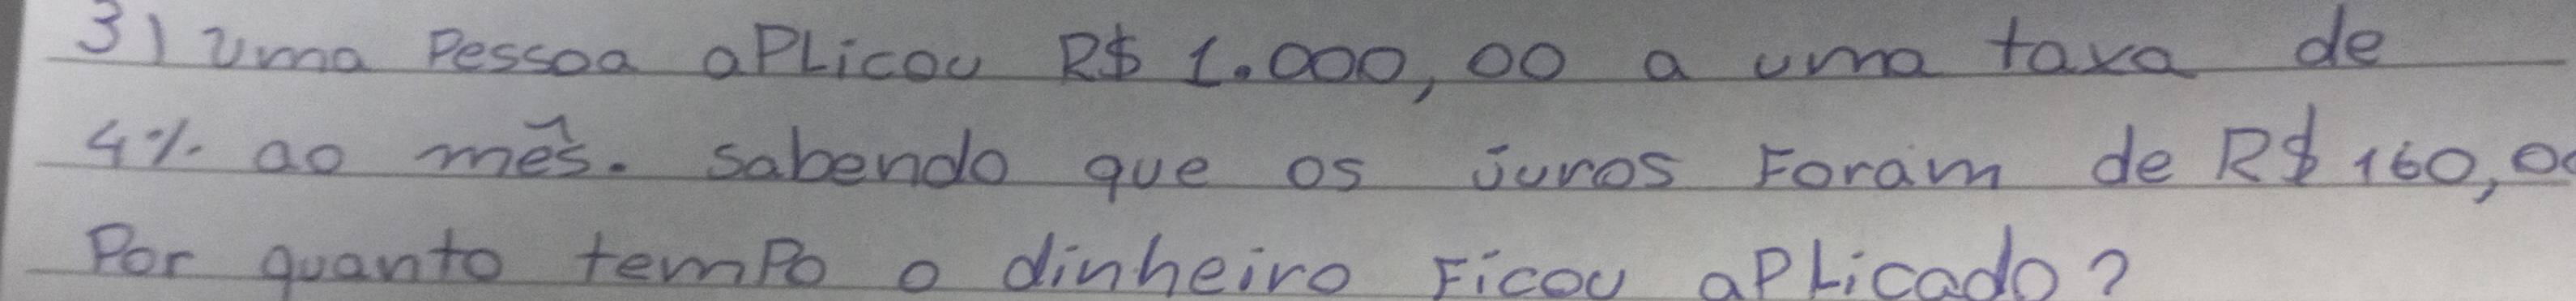 3) Uma Pessoa aPLicou R$ 1.000,00 a uma taxa de
4% ao mês. Sabendo que os juros Foram de R$ 160,00
Por quanto temPo o dinheiro Ficou aPLicado?